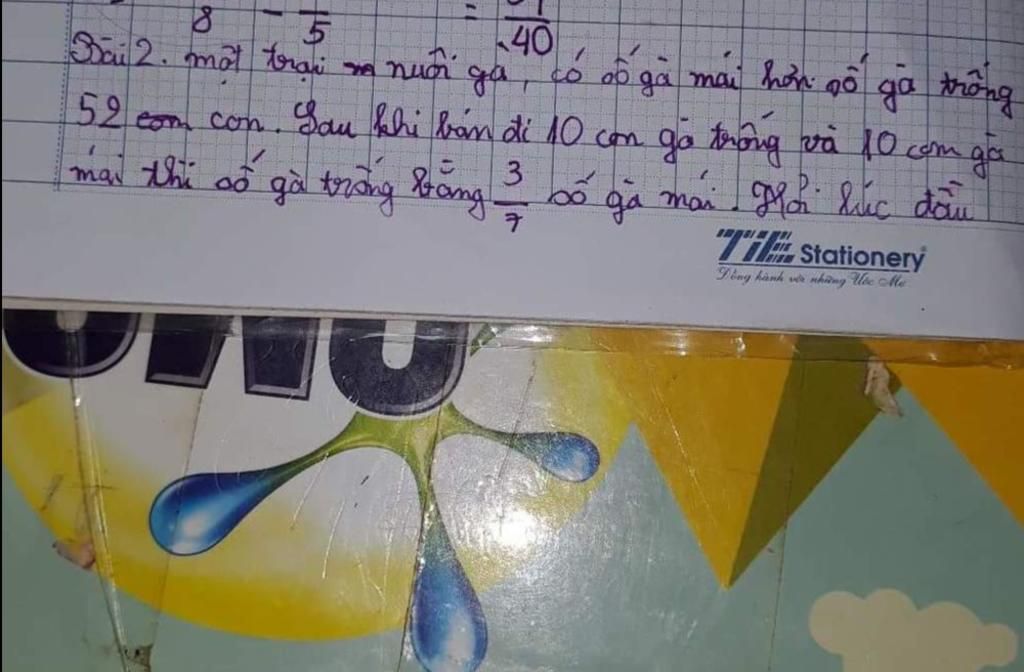 8 - 5 = 40
Bài 2. một trại nuôi gà, có số gà mái hơn số gà trống
52 con. Sau khi bán đi 10 con gà trống và 10 con gà
mái thì số gà trống bằng 3/7 số gà mái. Hỏi lúc đầu
TiE Stationery
Đồng hành với những Ước Mơ
OMO